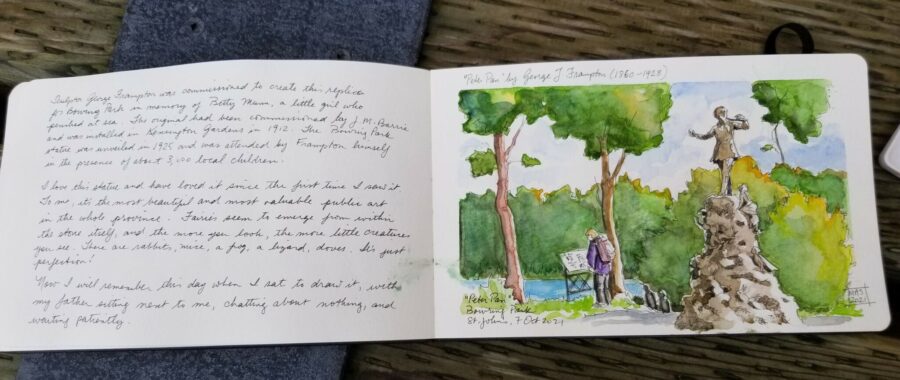 Sculptor George Frampton was commissioned to create this replica
for Bowring Park in memory of Betty Munn, a little girl who
perished at sea. The original had been commissioned by J.M. Barrie
and was installed in Kensington Gardens in 1912. The Bowring Park
statue was unveiled in 1925 and was attended by Frampton himself
in the presence of about 3,000 local children.
I love this statue and have loved it since the first time I saw it.
To me, it's the most beautiful and most valuable public art
in the whole province. Fairies seem to emerge from within
the stone itself, and the more you look, the more little creatures
you see. There are rabbits, mice, a frog, a lizard, doves. It's just
perfection!
Now I will remember this day when I sat to draw it, with
my father sitting next to me, chatting about nothing, and
waiting patiently.
"Peter Pan" by George J Frampton (1860-1928)
"Peter Pan"
Bowring Park
St. John's, 7 Oct 2021
2021